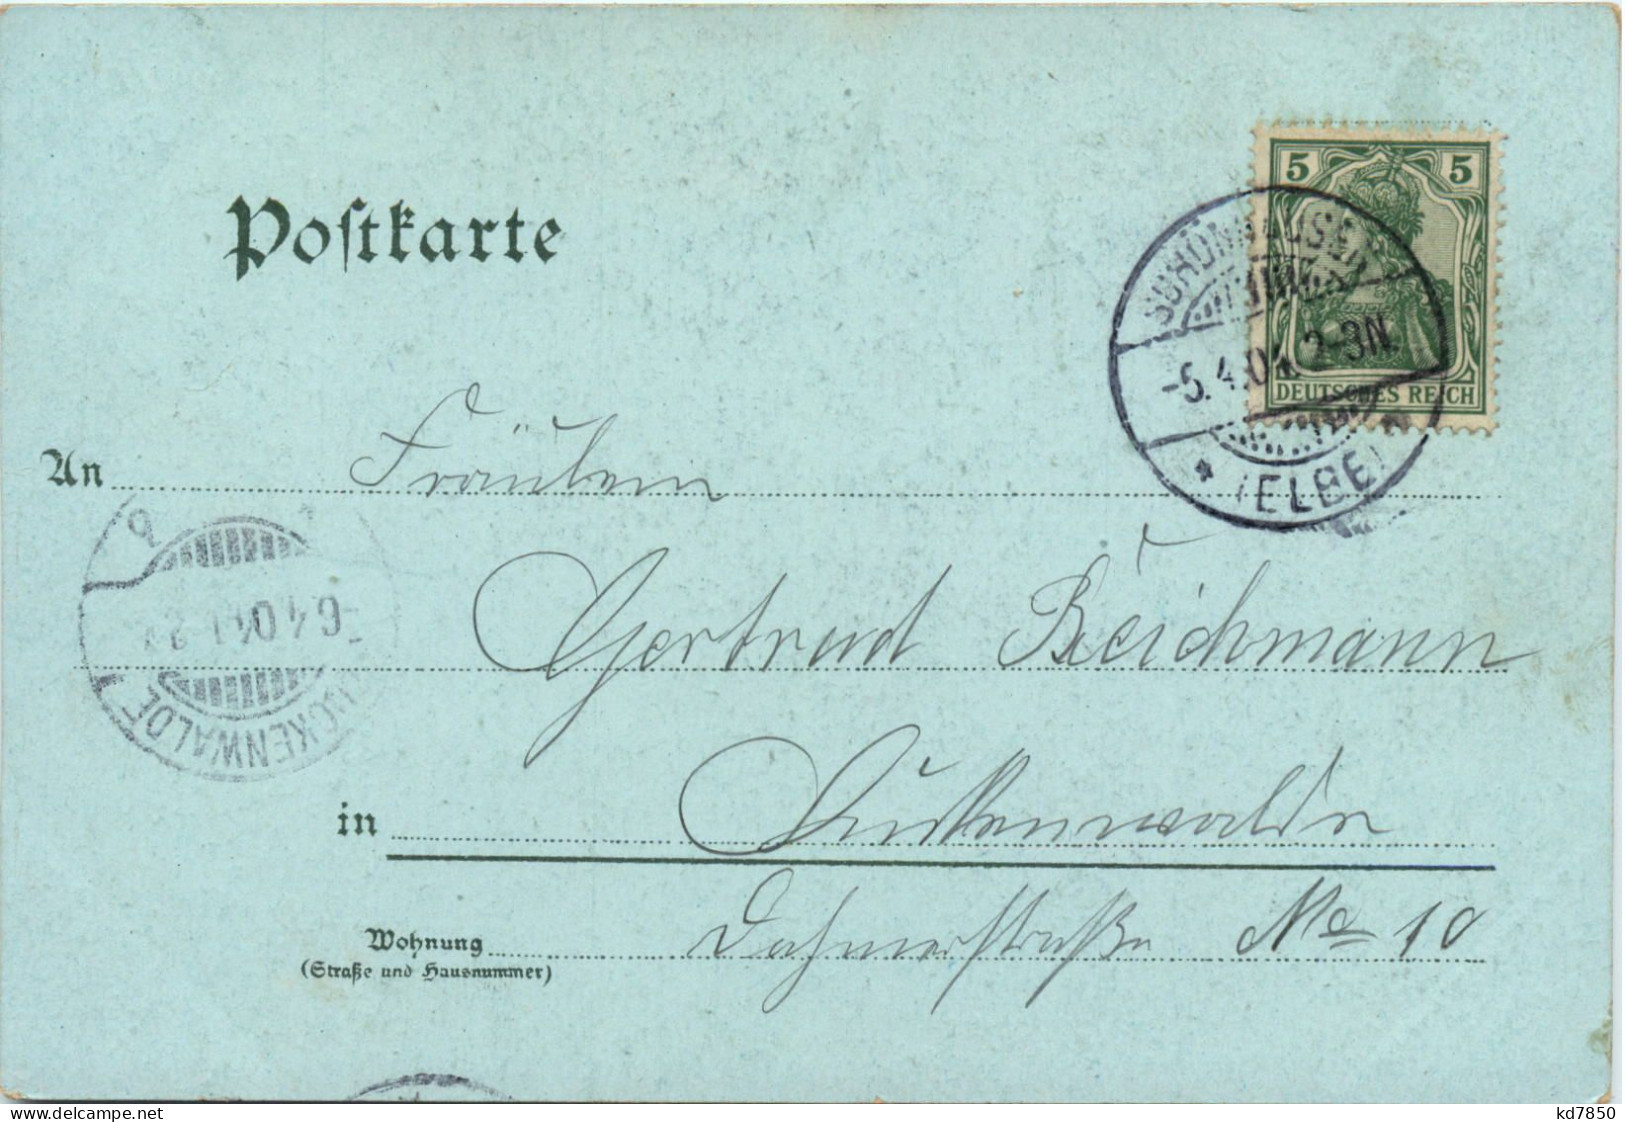 Postkarte
5 5
DEUTSCHES REICH
SCHÖNHAUSEN
-5.4.04. 2-3N.
* (ELBE)
An Fräulein
Gertrud Reichmann
LUCKENWALDE
-6.4.04.
in Luckenwalde
Wohnung Dahmerstraße No 10
(Straße und Hausnummer)
www.delcampe.net
kd7850